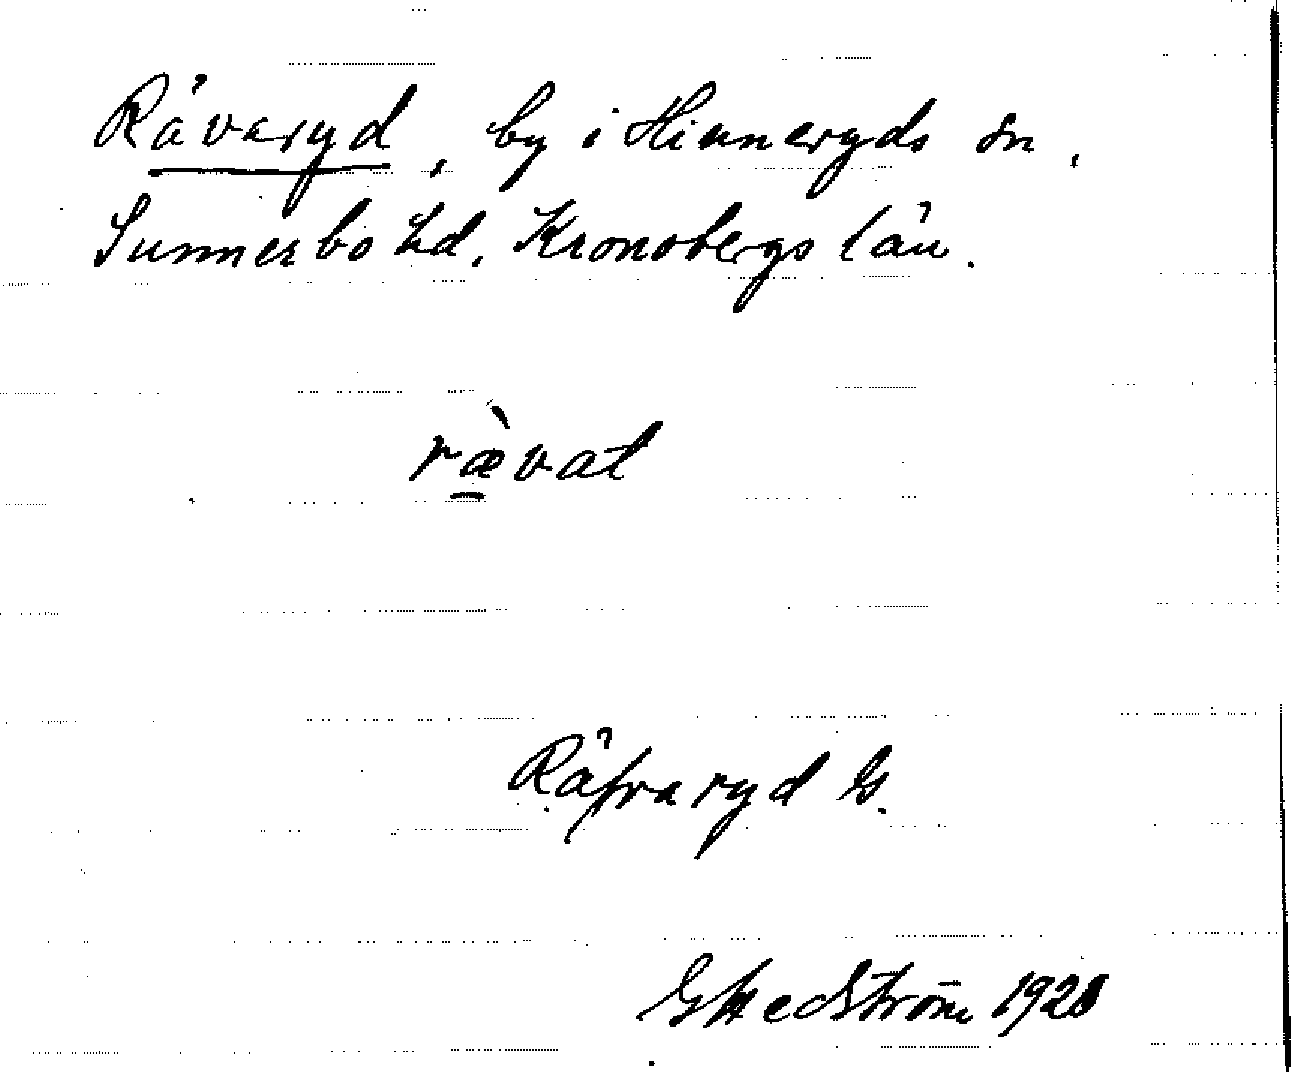 Råvaryd, by i Hinneryds sn,
Sunnerbo hd, Kronobergs län.
rævat
Räfvaryd G.
G Hedström 1920